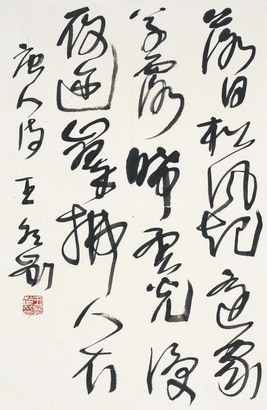 落日松風起還家
草露晞雲光侵
履迹山翠拂人衣
唐人詩 王冬齡